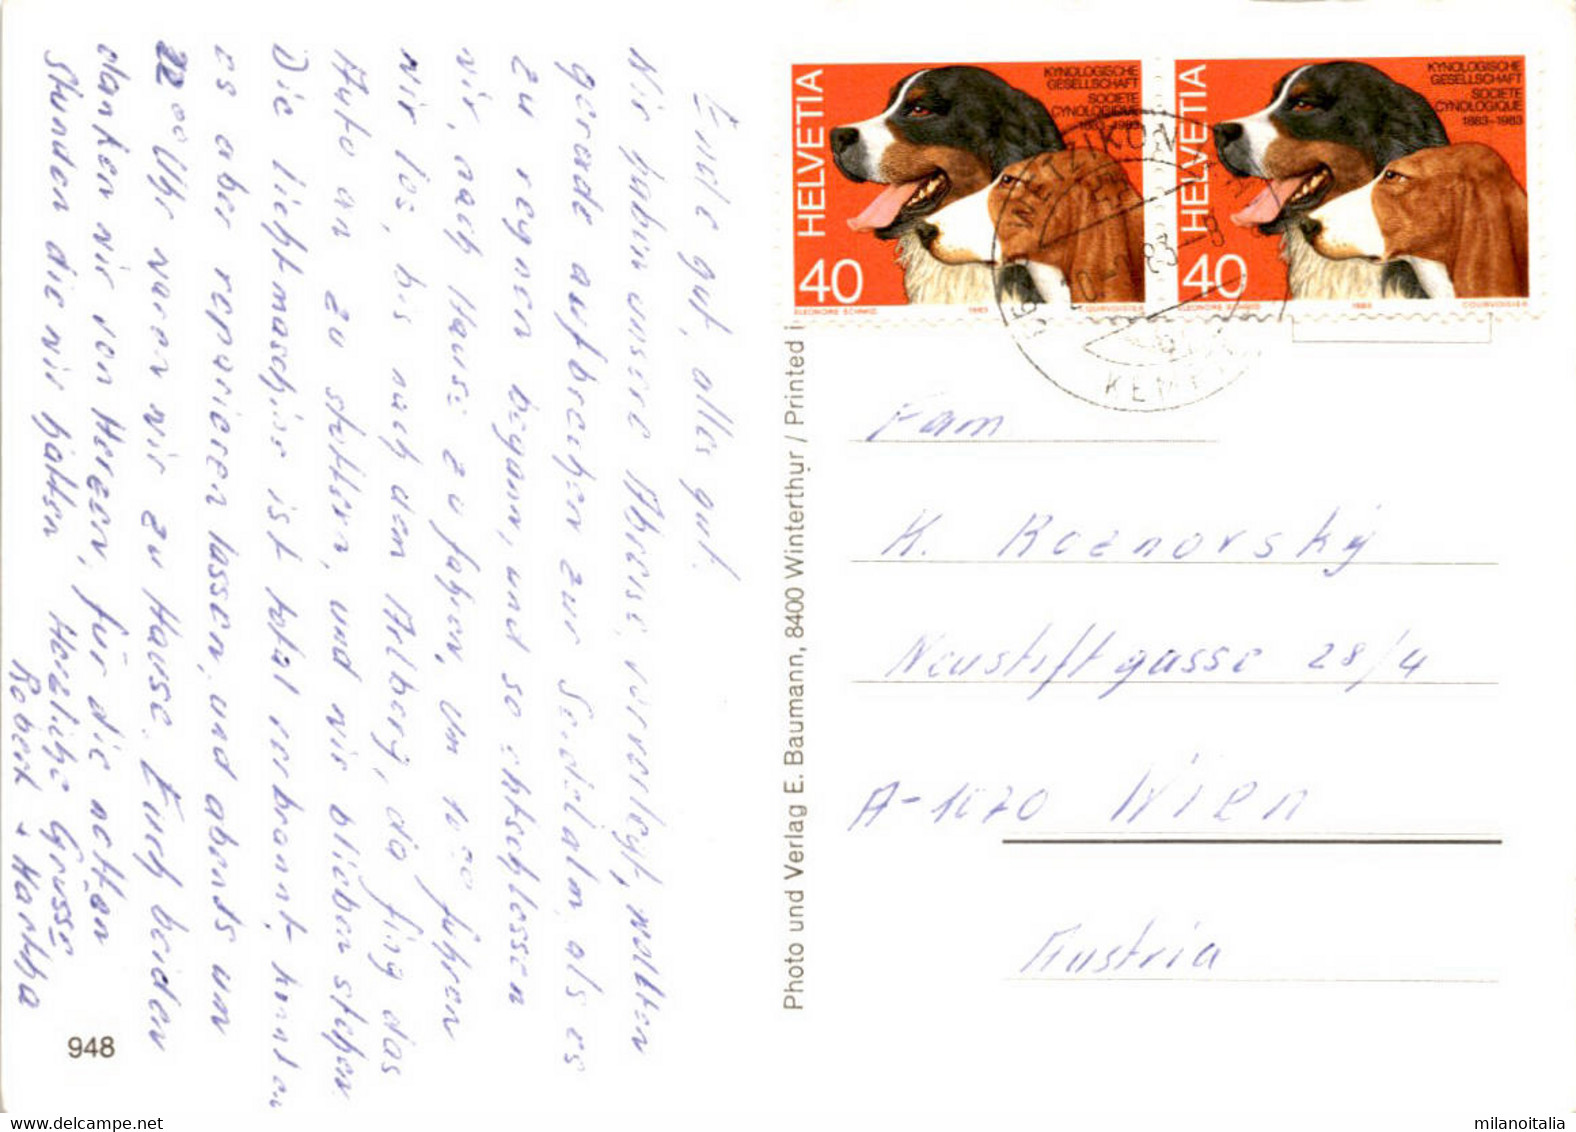 Ende gut, alles gut!
Wir haben unsere Abreise vorverlegt, wollten
gerade aufbrechen zur Seidlalm, als es
zu regnen begann, und so entschlossen
wir, nach Hause zu fahren, um 10 00 fuhren
wir los, bis nach dem Arlberg, da fing das
Auto an zu stottern, und wir blieben stehen.
Die Lichtmaschine ist total verbrannt, konnten
es aber reparieren lassen, und abends um
22 00 Uhr waren wir zu Hause. Euch beiden
danken wir von Herzen, für die netten
Stunden die wir hatten
Herzliche Grüsse
Robert u Martha
948
Photo und Verlag E. Baumann, 8400 Winterthur / Printed i
HELVETIA
40
KYNOLOGISCHE
GESELLSCHAFT
SOCIETE
CYNOLOGIQUE
1883-1983
ELEONORE SCHMID
1983
COURVOISIER
HELVETIA
40
KYNOLOGISCHE
GESELLSCHAFT
SOCIETE
CYNOLOGIQUE
1883-1983
ELEONORE SCHMID
1983
COURVOISIER
WETZIKON
Fam
K. Roznovský
Neustiftgasse 28/4
A-1070 Wien
Austria
milanoitalia